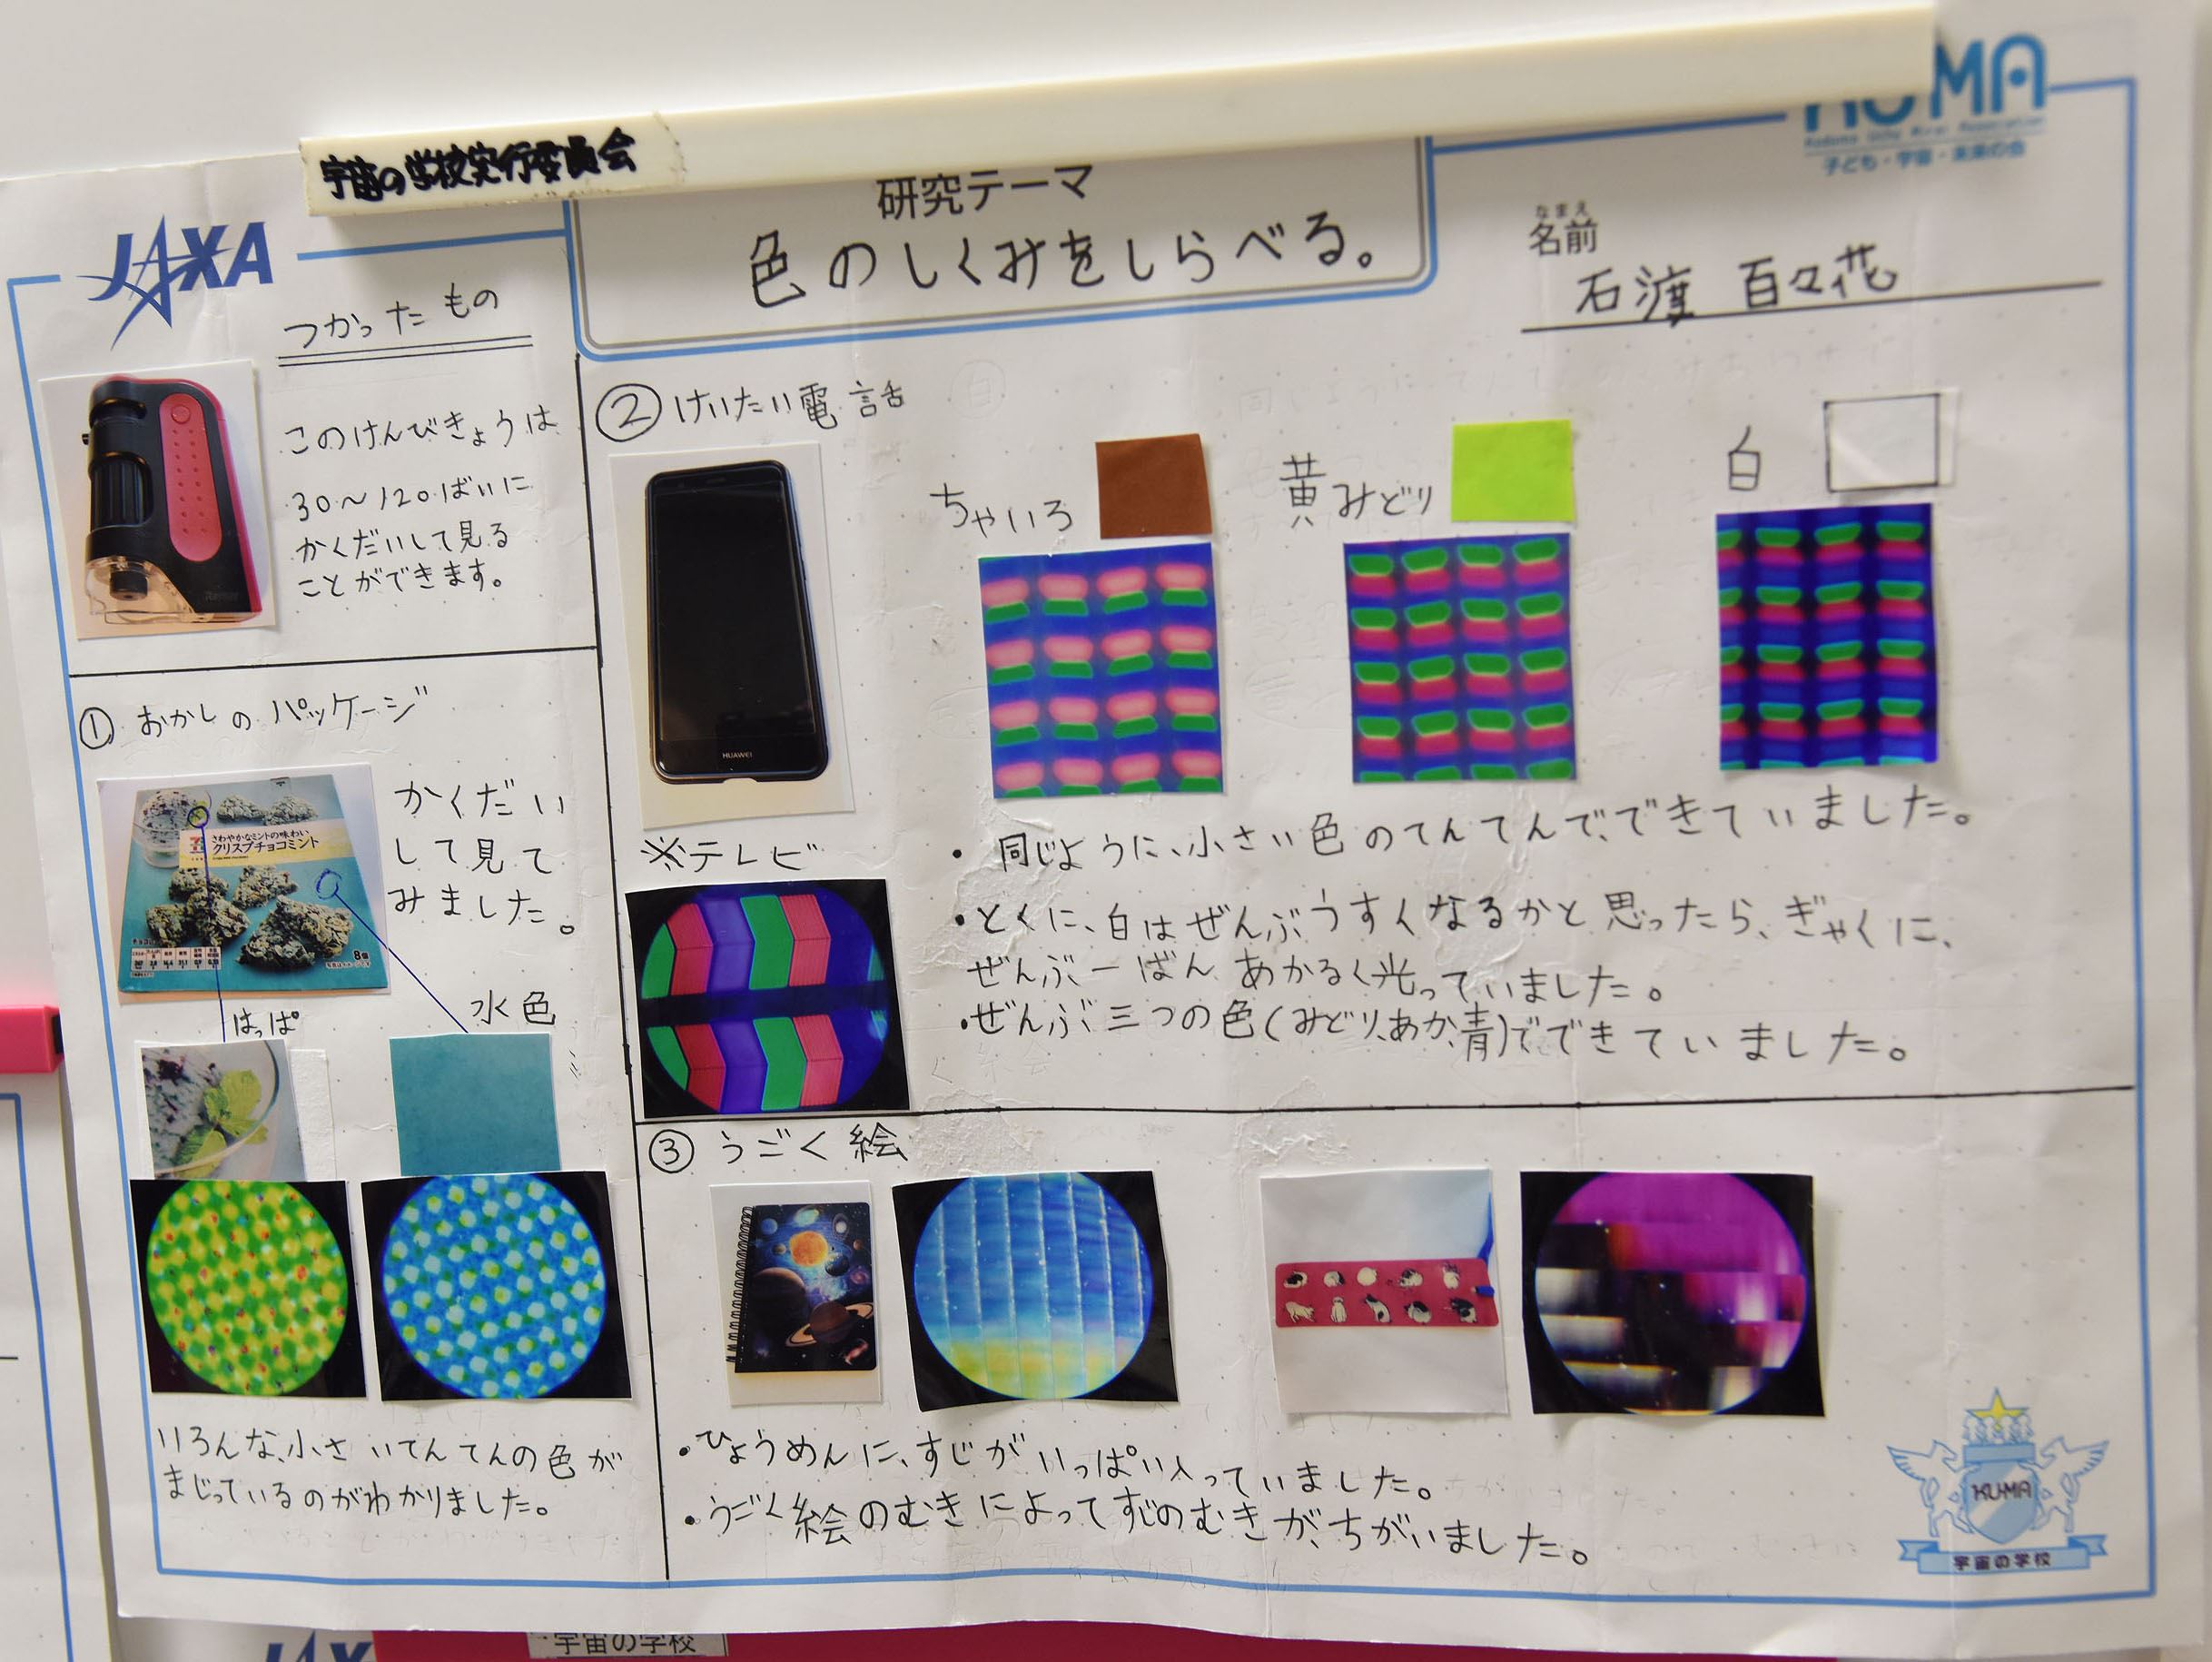 宇宙の学校実行委員会
KUMA
Kodomo Uchu Mirai Association
子ども・宇宙・未来の会
JAXA
研究テーマ
色のしくみをしらべる。
なまえ
名前
石渡 百々花
つかったもの
このけんびきょうは
30〜120ばいに
かくだいして見る
ことができます。
①おかしのパッケージ
さわやかなミントの味わい
クリスプチョコミント
8個
かくだい
して見て
みました。
はっぱ
水色
いろんな、小さいてんてんの色が
まじっているのがわかりました。
②けいたい電話
HUAWEI
ちゃいろ
黄みどり
白
※テレビ
・同じように、小さい色のてんてんで、できていました。
・とくに、白はぜんぶうすくなるかと思ったら、ぎゃくに、
ぜんぶ一ばんあかるく光っていました。
・ぜんぶ三つの色(みどり、あか、青)でできていました。
③うごく絵
・ひょうめんに、すじがいっぱい入っていました。
・うごく絵のむきによってすじのむきが、ちがいました。
KU-MA
宇宙の学校
宇宙の学校